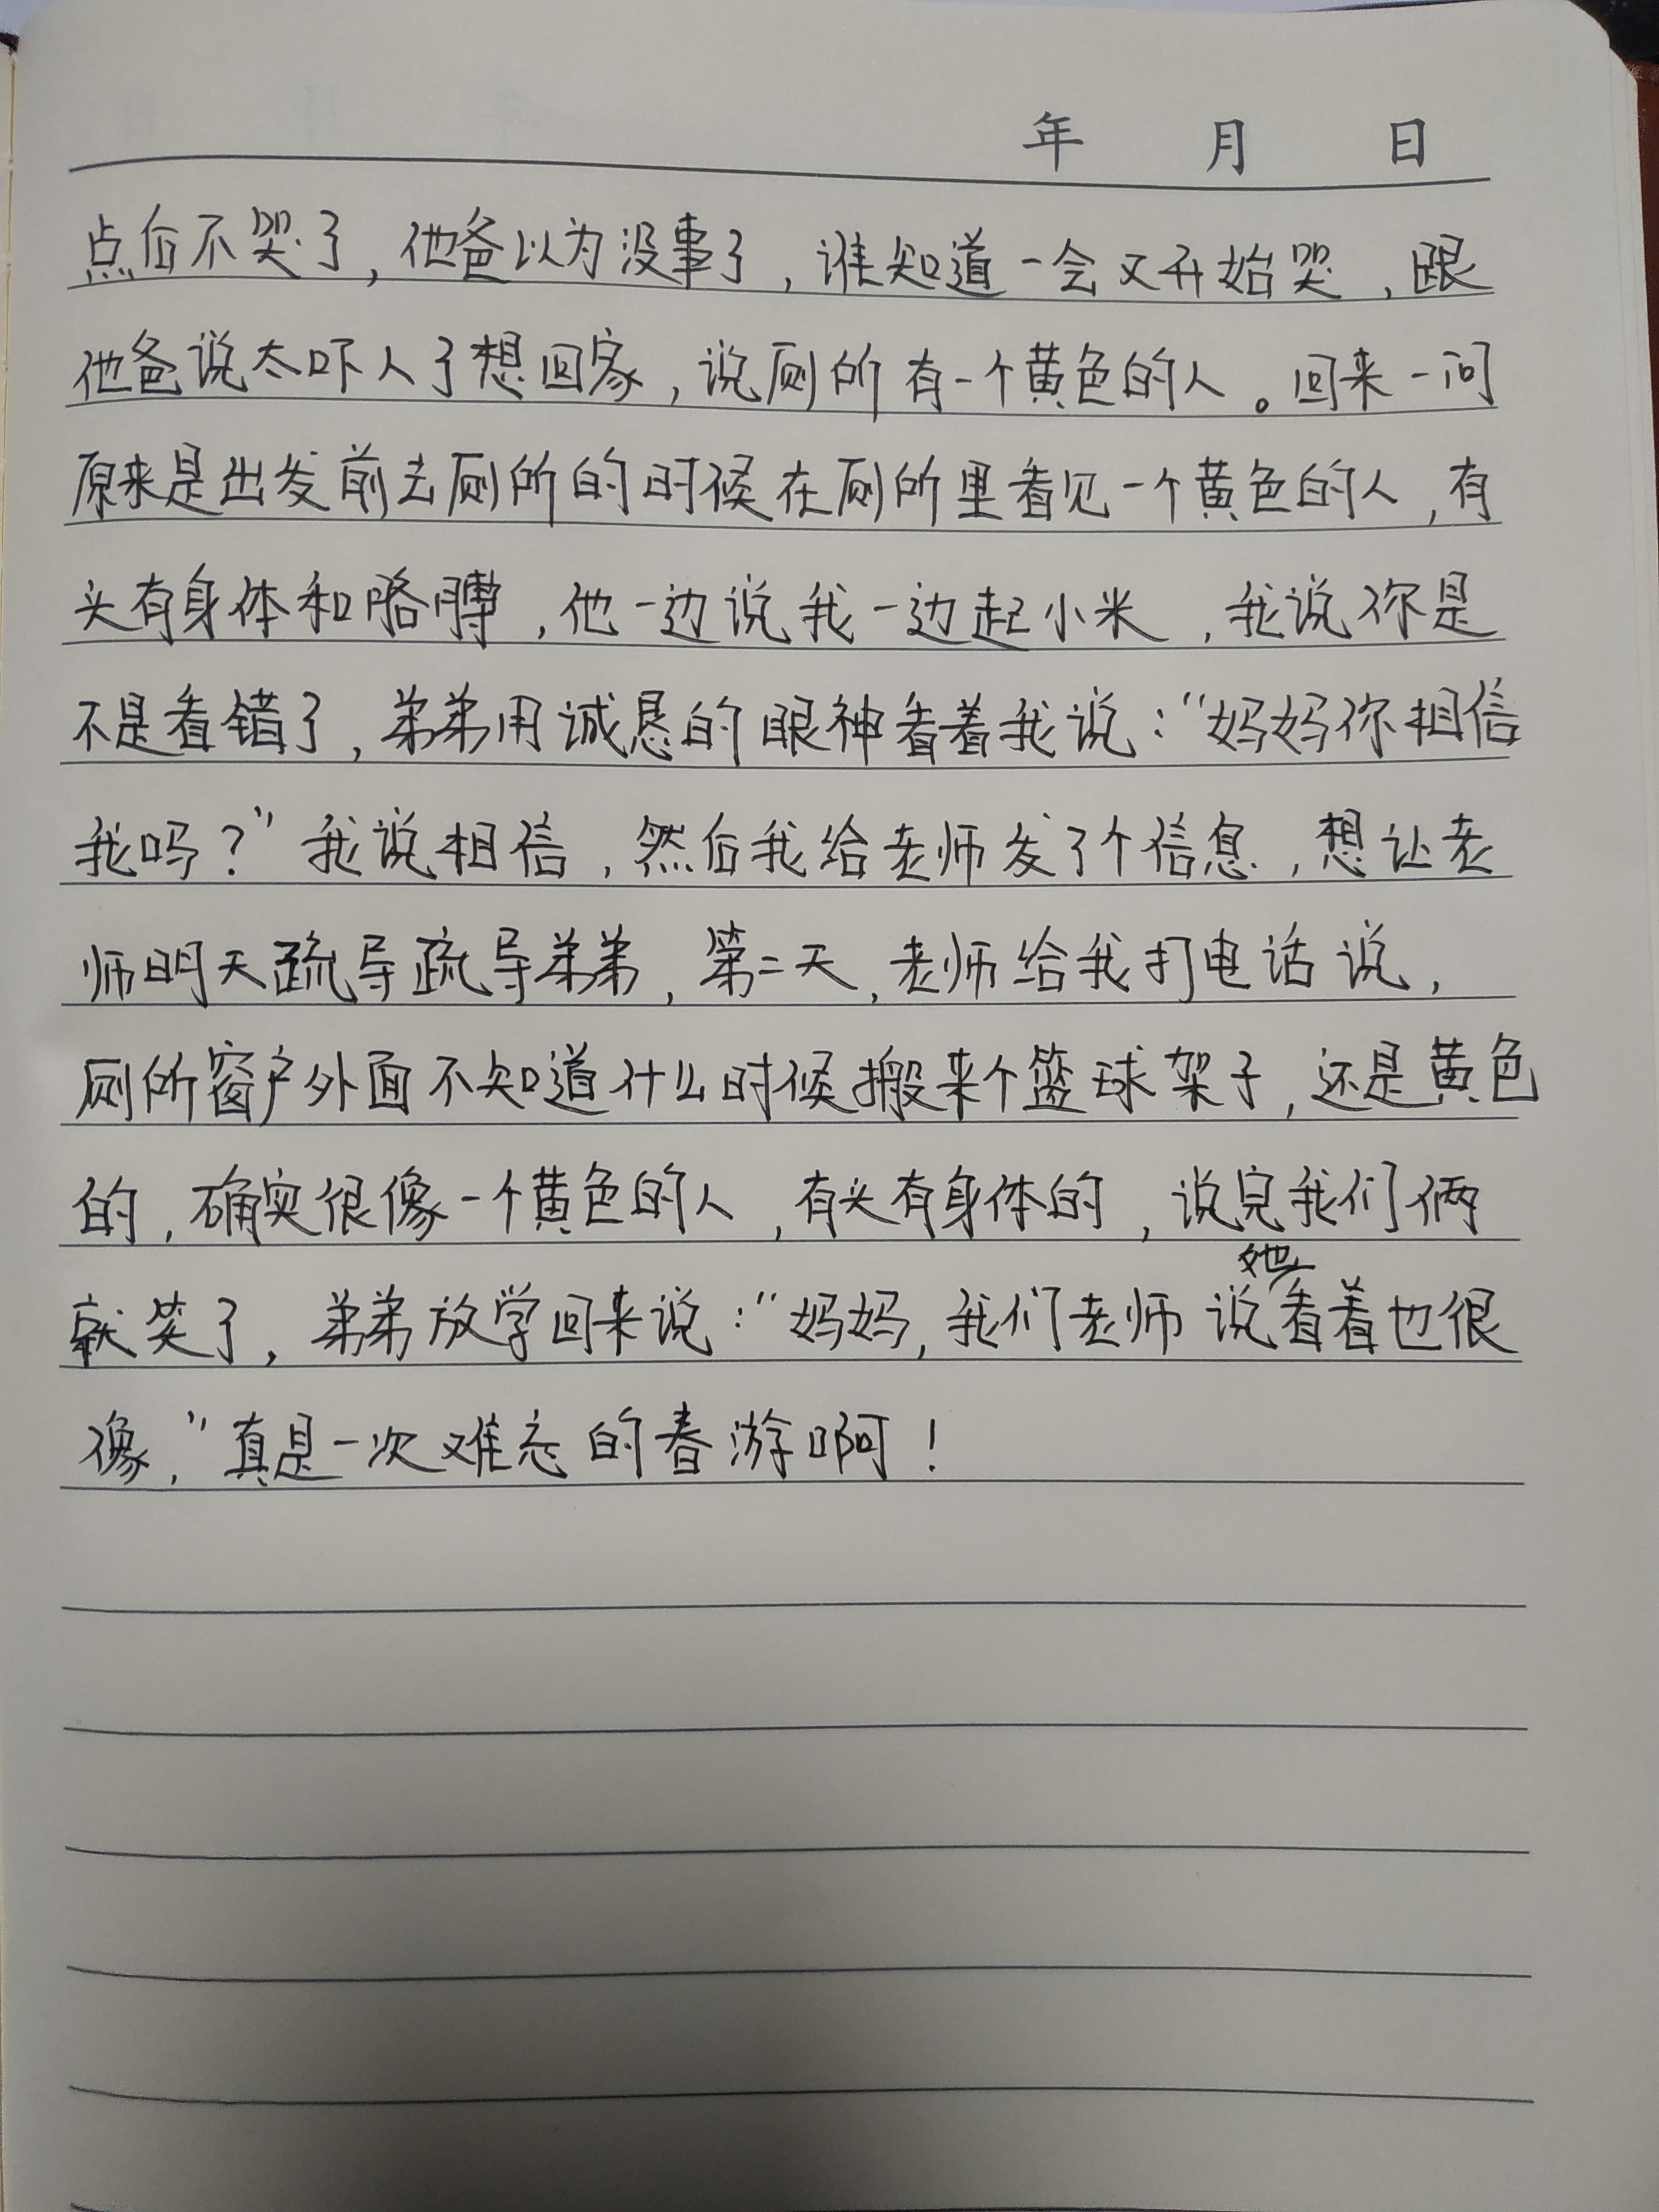 年 月 日
点后不哭了，他爸以为没事了，谁知道一会又开始哭，跟
他爸说太吓人了想回家，说厕所有一个黄色的人。回来一问
原来是出发前去厕所的时候在厕所里看见一个黄色的人，有
头有身体和胳膊，他一边说我一边起小米，我说你是
不是看错了，弟弟用诚恳的眼神看着我说：“妈妈你相信
我吗？”我说相信，然后我给老师发了个信息，想让老
师明天疏导疏导弟弟，第二天，老师给我打电话说，
厕所窗户外面不知道什么时候搬来个篮球架子，还是黄色
的，确实很像一个黄色的人，有头有身体的，说完我们俩
就笑了，弟弟放学回来说：“妈妈，我们老师说她看着也很
像，”真是一次难忘的春游啊！